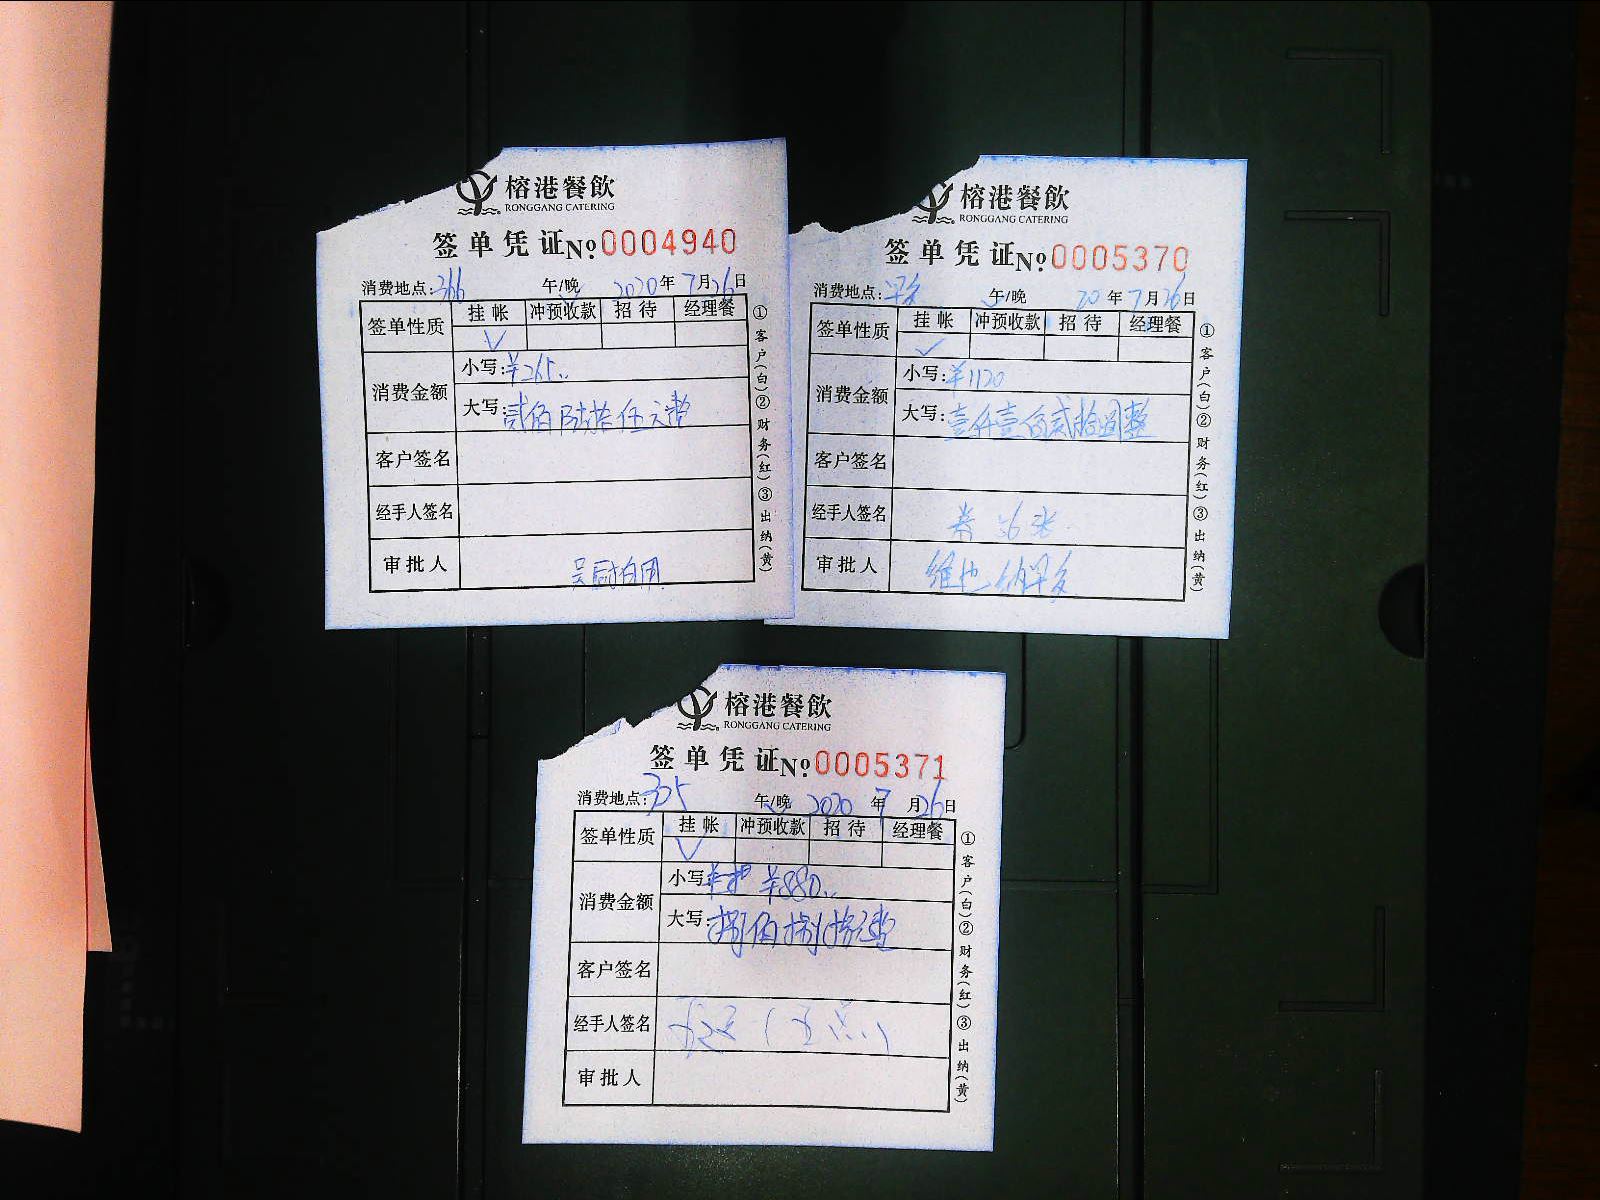 榕港餐飲
RONGGANG CATERING
签单凭证 No. 0004940
消费地点: 366 午/晚 2020年7月26日
签单性质 挂帐 冲预收款 招待 经理餐
消费金额 小写: ¥265..
大写: 贰佰陆拾伍元整
客户签名
经手人签名
审批人 吴厨自用
①客户(白)②财务(红)③出纳(黄)
榕港餐飲
RONGGANG CATERING
签单凭证 No. 0005370
消费地点: 午/晚 20年7月26日
签单性质 挂帐 冲预收款 招待 经理餐
消费金额 小写: ¥1120
大写: 壹仟壹佰贰拾圆整
客户签名
经手人签名 券56张
审批人 维也纳早
①客户(白)②财务(红)③出纳(黄)
榕港餐飲
RONGGANG CATERING
签单凭证 No. 0005371
消费地点: 305 午/晚 2020年7月26日
签单性质 挂帐 冲预收款 招待 经理餐
消费金额 小写: ¥880..
大写: 捌佰捌拾元整
客户签名
经手人签名
审批人
①客户(白)②财务(红)③出纳(黄)